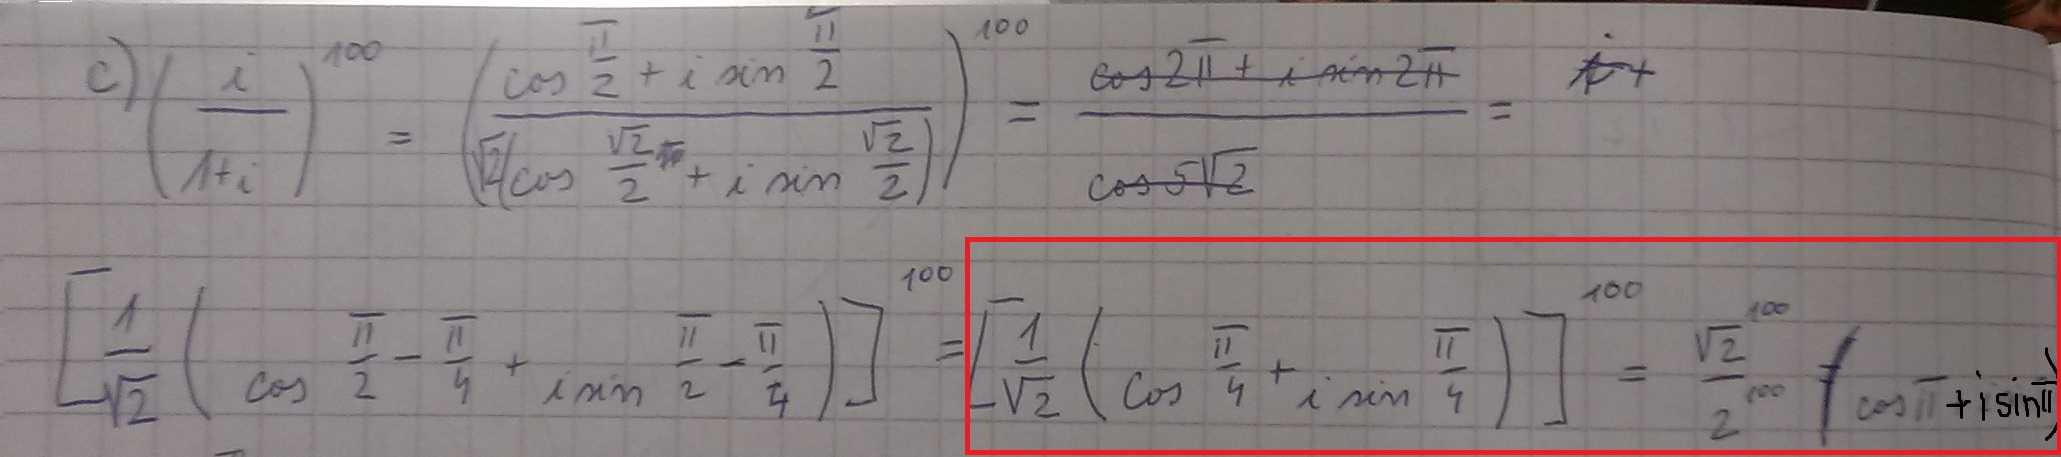 c) (i / 1+i)^100 = (cos π/2 + i sin π/2 / √2(cos √2/2 + i sin √2/2))^100 = cos 2π + i sin 2π / cos 5√2 =
[1/√2 (cos π/2 - π/4 + i sin π/2 - π/4)]^100 = [1/√2 (cos π/4 + i sin π/4)]^100 = √2^100 / 2^100 (cos π + i sin π)